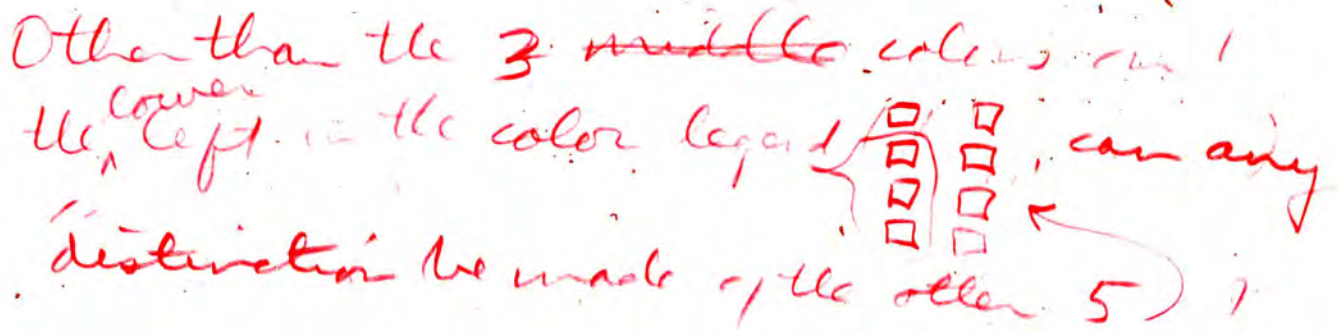 Other than the 3 middle colors on
the lower left in the color legend , can any
distinction be made of the other 5 ?